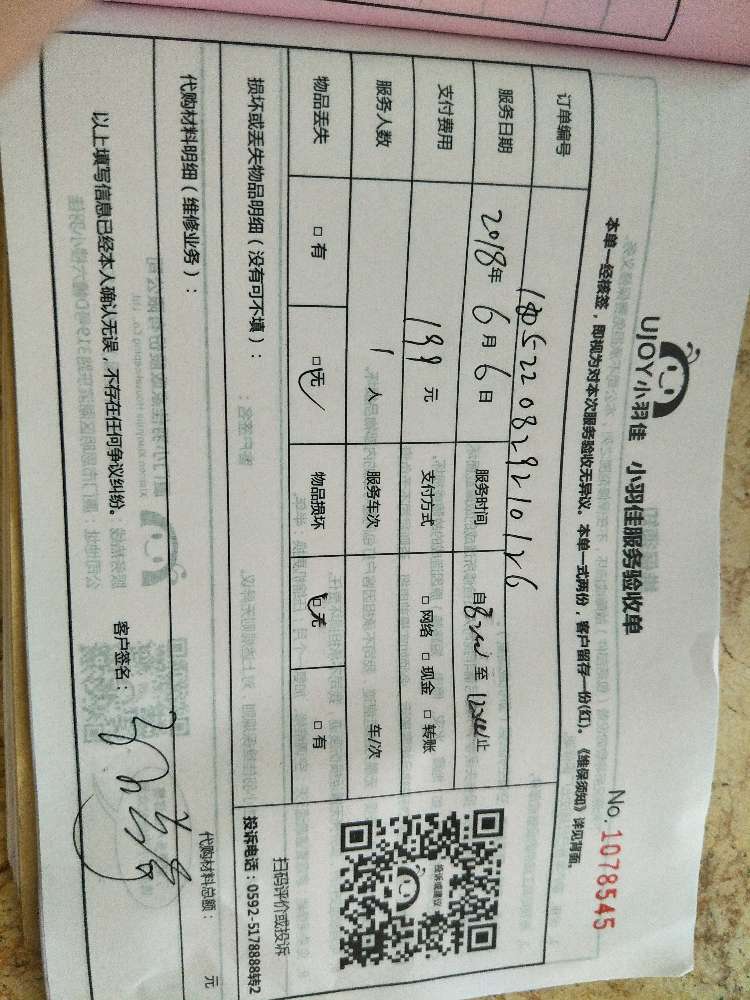 UJOY小羽佳 小羽佳服务验收单
No.1078545
本单一经核签，即视为对本次服务验收无异议。本单一式两份，客户留存一份(红)。《维保须知》详见背面。
订单编号 1805220829210126
服务日期 2018年6月6日 服务时间 自 至 止
支付费用 199元 支付方式 □网络 □现金 □转账
服务人数 1人 服务车次 车/次
物品丢失 □有 □无 物品损坏 □无 □有
投诉或建议
扫码评价或投诉
投诉电话：0592-5178888转2
损坏或丢失物品明细（没有可不填）：
代购材料明细（维修业务）：
代购材料总额： 元
以上填写信息已经本人确认无误，不存在任何争议纠纷。 客户签名：